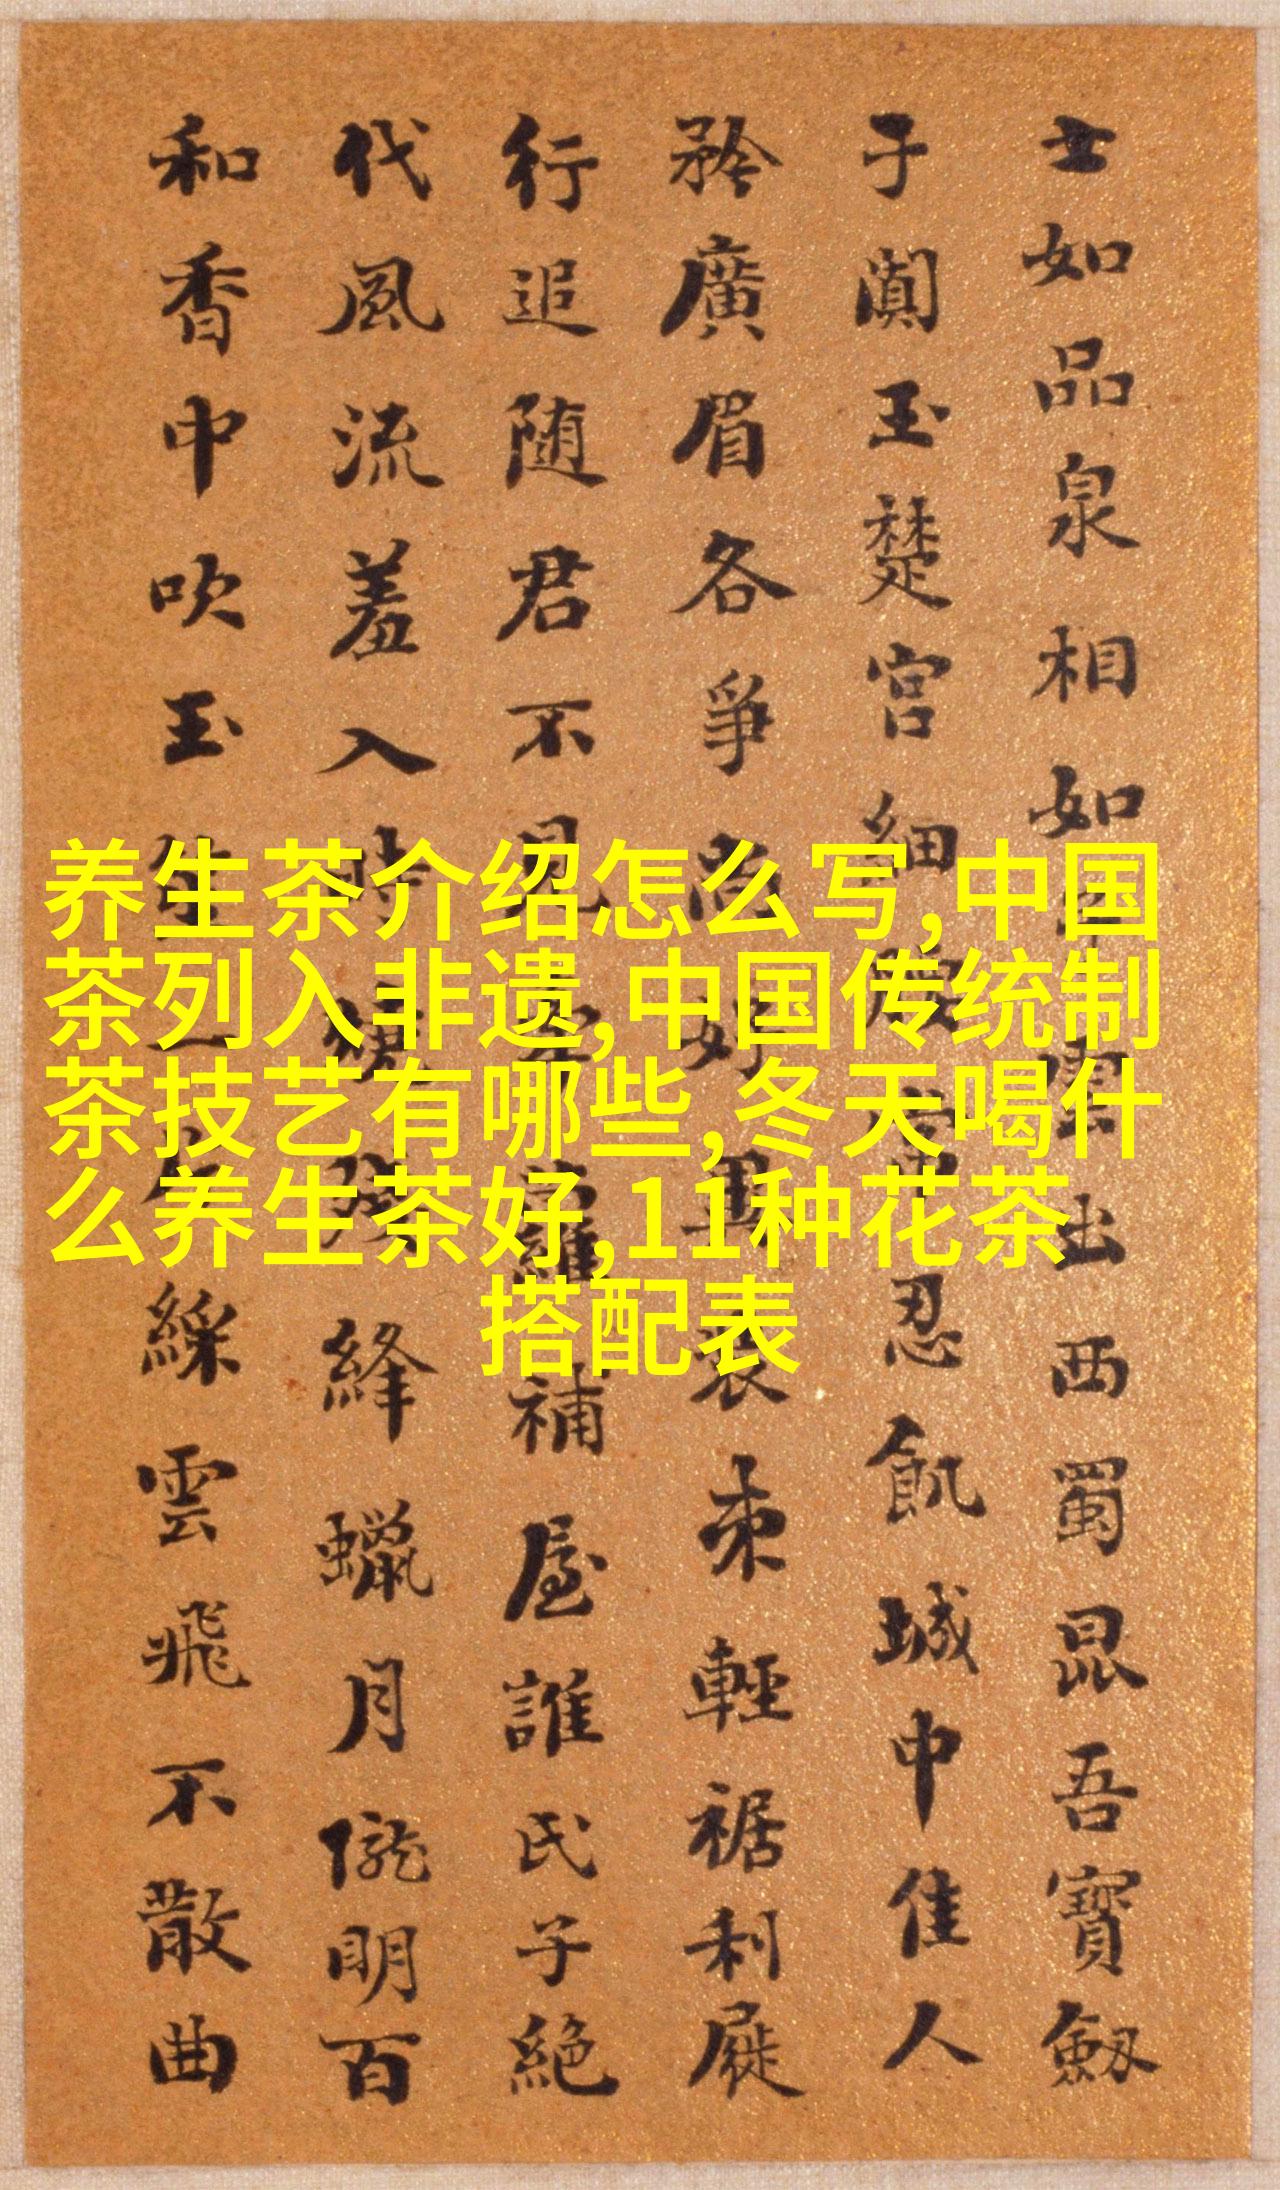 养生茶介绍怎么写,中国
茶列入非遗,中国传统制
茶技艺有哪些,冬天喝什
么养生茶好,11种花茶
搭配表
士如品泉相如雲出西蜀昆吾寶劔
于闐玉楚宮細腰宮中忍飢城中佳人
矜廣眉各爭尚好異裝束輕裾利屣
行追随君不見牽蘿補屋誰氏子絕
代風流羞入時絳蠟月隴明百
和香中吹玉笙綵雲飛不散曲